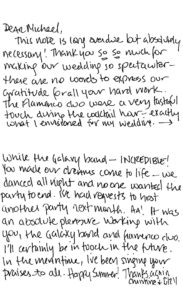 Dear Michael,
This note is long overdue but absolutely
necessary! Thank you so so much for
making our wedding so spectacular –
there are no words to express our
gratitude for all your hard work.
The Flamenco duo were a very tasteful
touch during the cocktail hour – exactly
what I envisioned for my wedding. →
While the Galaxy band – INCREDIBLE!
You made our dreams come to life – we
danced all night and no one wanted the
party to end. I've had requests to host
another party next month. Ha! It was
an absolute pleasure working with
you, the Galaxy band and flamenco duo.
I'll certainly be in touch in the future.
In the meantime, I've been singing your
praises to all. Happy Summer! Thanks again